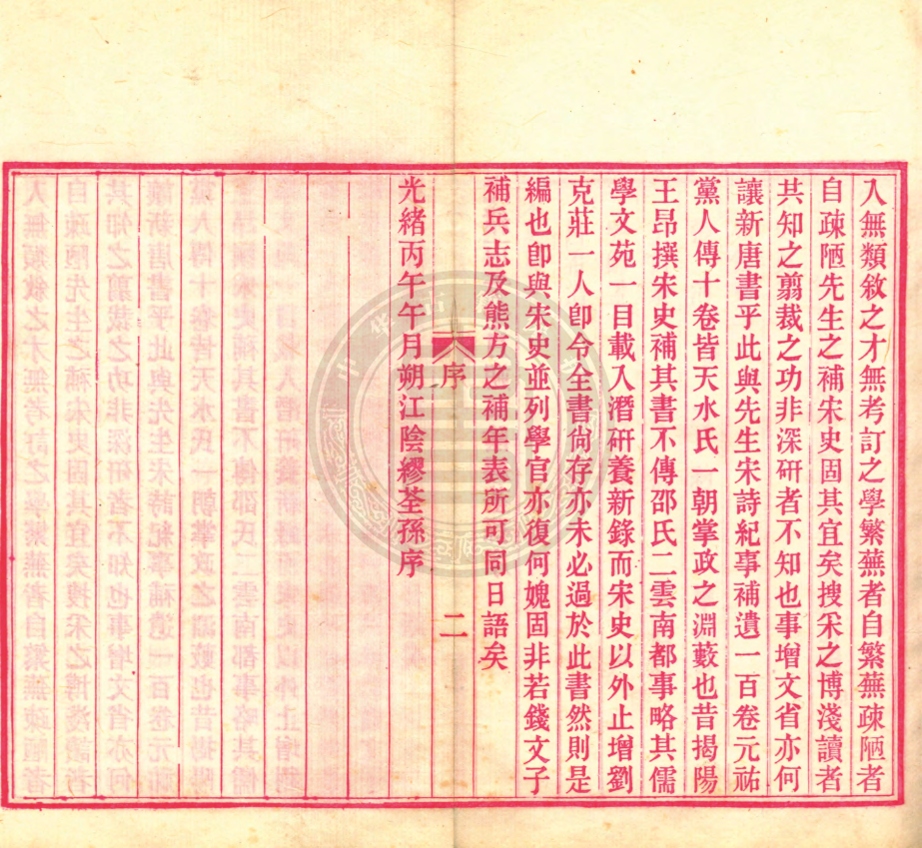 入無類敘之才無考訂之學繁蕪者自繁蕪疎陋者
自疎陋先生之補宋史固其宜矣搜采之博淺讀者
共知之翦裁之功非深研者不知也事增文省亦何
讓新唐書乎此與先生宋詩紀事補遺一百卷元祐
黨人傳十卷皆天水氏一朝掌政之淵藪也昔揭陽
王昂撰宋史補其書不傳邵氏二雲南都事略其儒
學文苑一目載入潛研養新錄而宋史以外止增劉
克莊一人卽令全書尙存亦未必過於此書然則是
編也卽與宋史並列學官亦復何媿固非若錢文子
補兵志及熊方之補年表所可同日語矣
光緒丙午午月朔江陰繆荃孫序
序
二